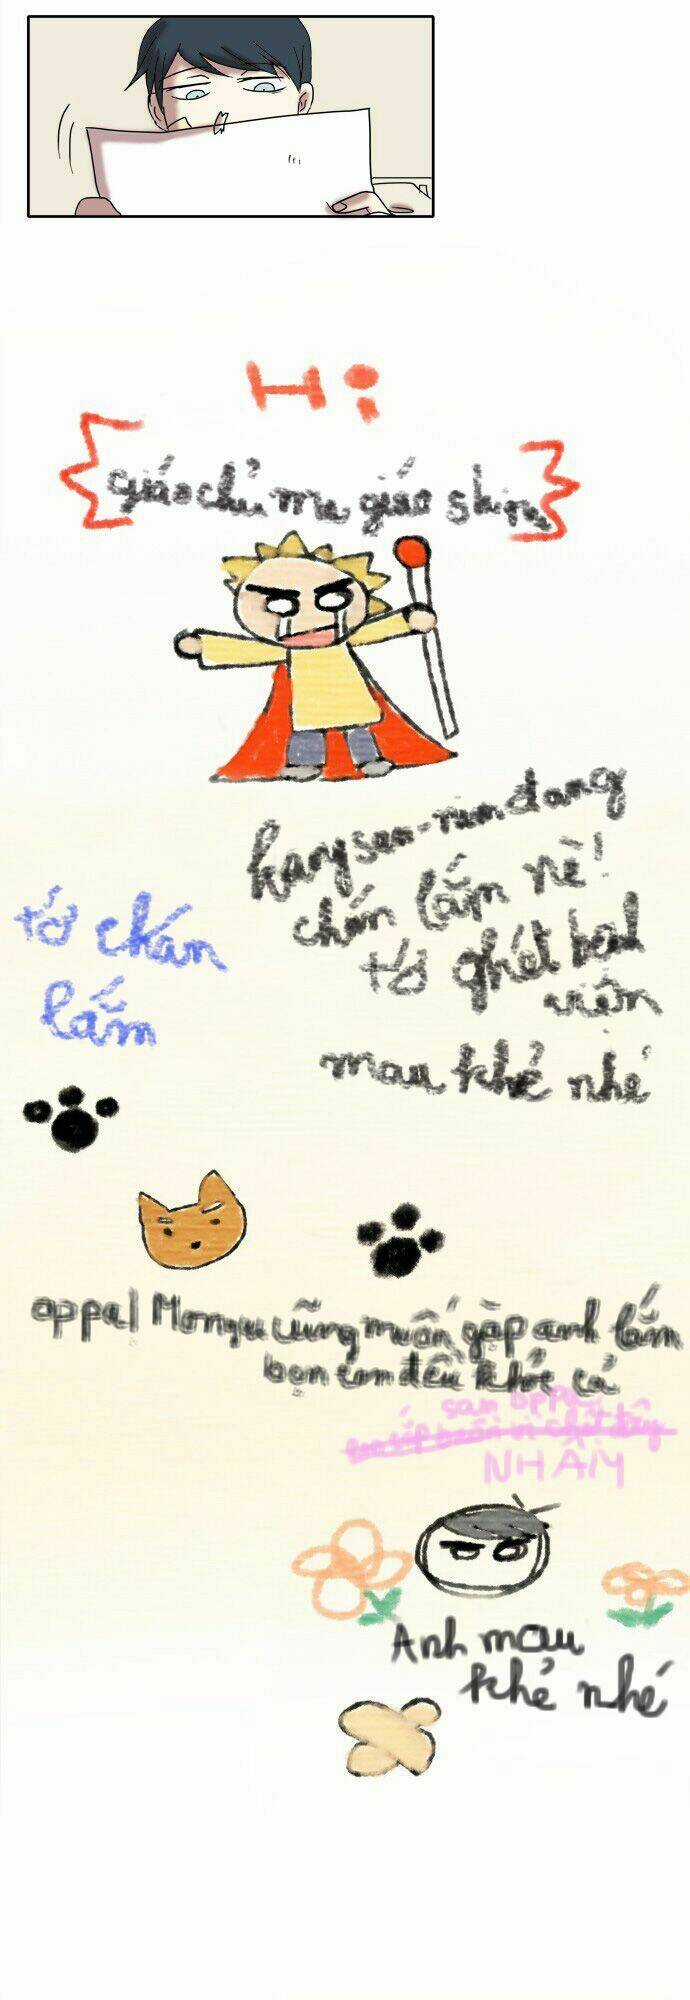 Hi
giáo chủ ma giáo shin
kang san-nim đang
chán lắm nè!
tớ ghét bệnh
viện
mau khỏe nhé
tớ chán
lắm
oppa! Mongu cũng muốn gặp anh lắm
bọn em đều khóc cả
san oppa
NHẦM
Anh mau
khỏe nhé